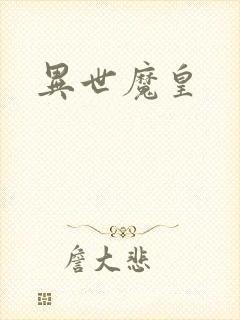 異世魔皇
詹大悲